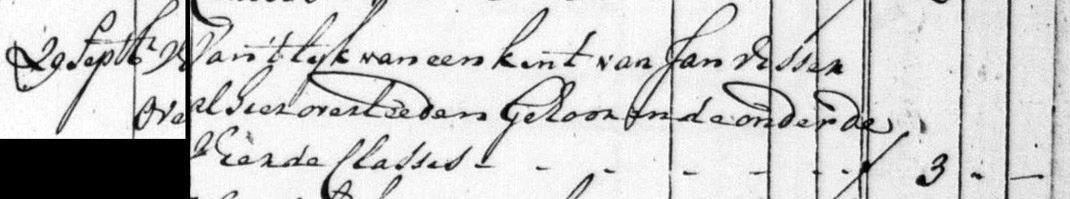 29 Septb Van't lijk van een kint van Jan Vissen
alhier overleeden Gehoorende onder de
Vierde Classes - - - - - - 3 - -